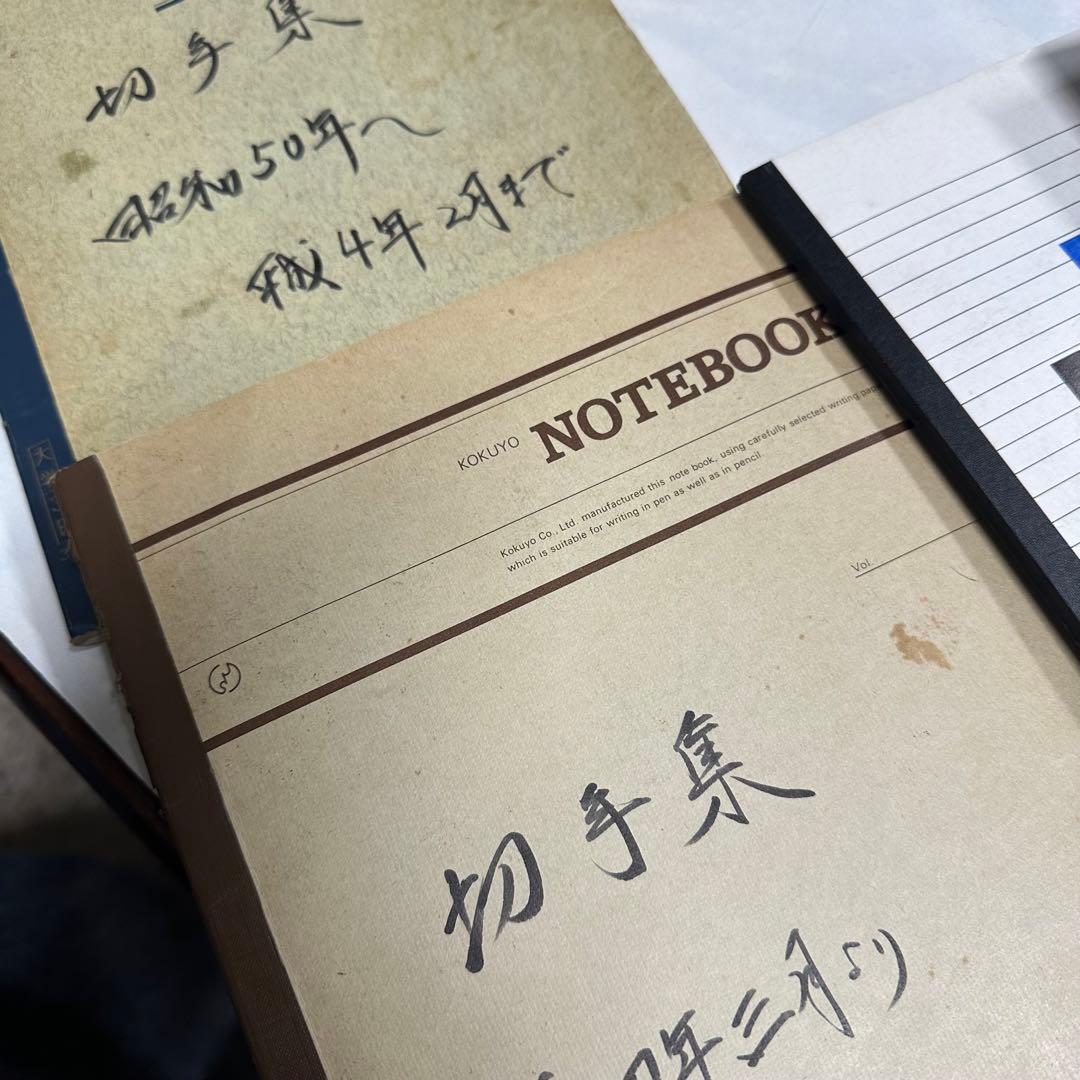 切手集
昭和50年〜
平成4年2月まで
KOKUYO NOTEBOOK
Kokuyo Co., Ltd. manufactured this note book, using carefully selected writing pap
which is suitable for writing in pen as well as in pencil
Vol.
切手集
四年三月より